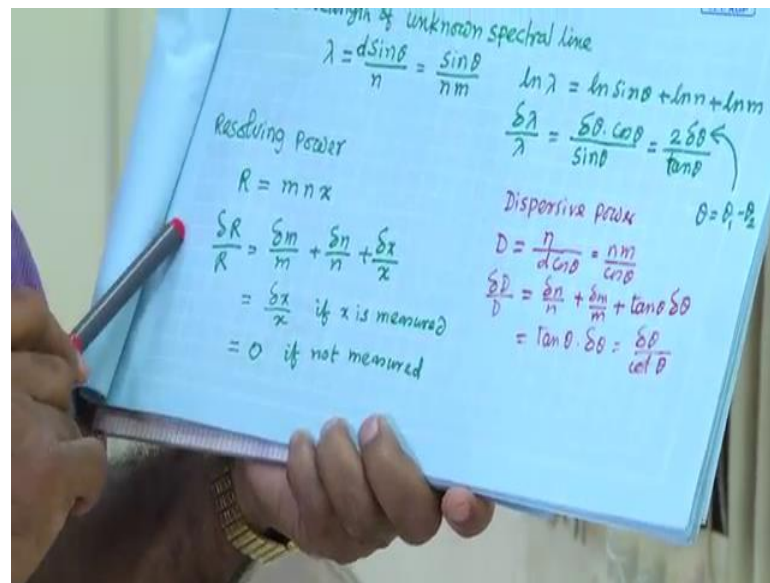 of unknown spectral line
λ = dsinθ/n = sinθ/nm
ln λ = ln sinθ + ln n + ln m
δλ/λ = δθ. cosθ/sinθ = 2δθ/tanθ
θ = θ₁ - θ₂
Resolving Power
R = m n x
δR/R = δm/m + δn/n + δx/x
= δx/x if x is measured
= 0 if not measured
Dispersive power
D = n/d cosθ = nm/cosθ
δD/D = δn/n + δm/m + tanθ δθ
= tanθ. δθ = δθ/cot θ